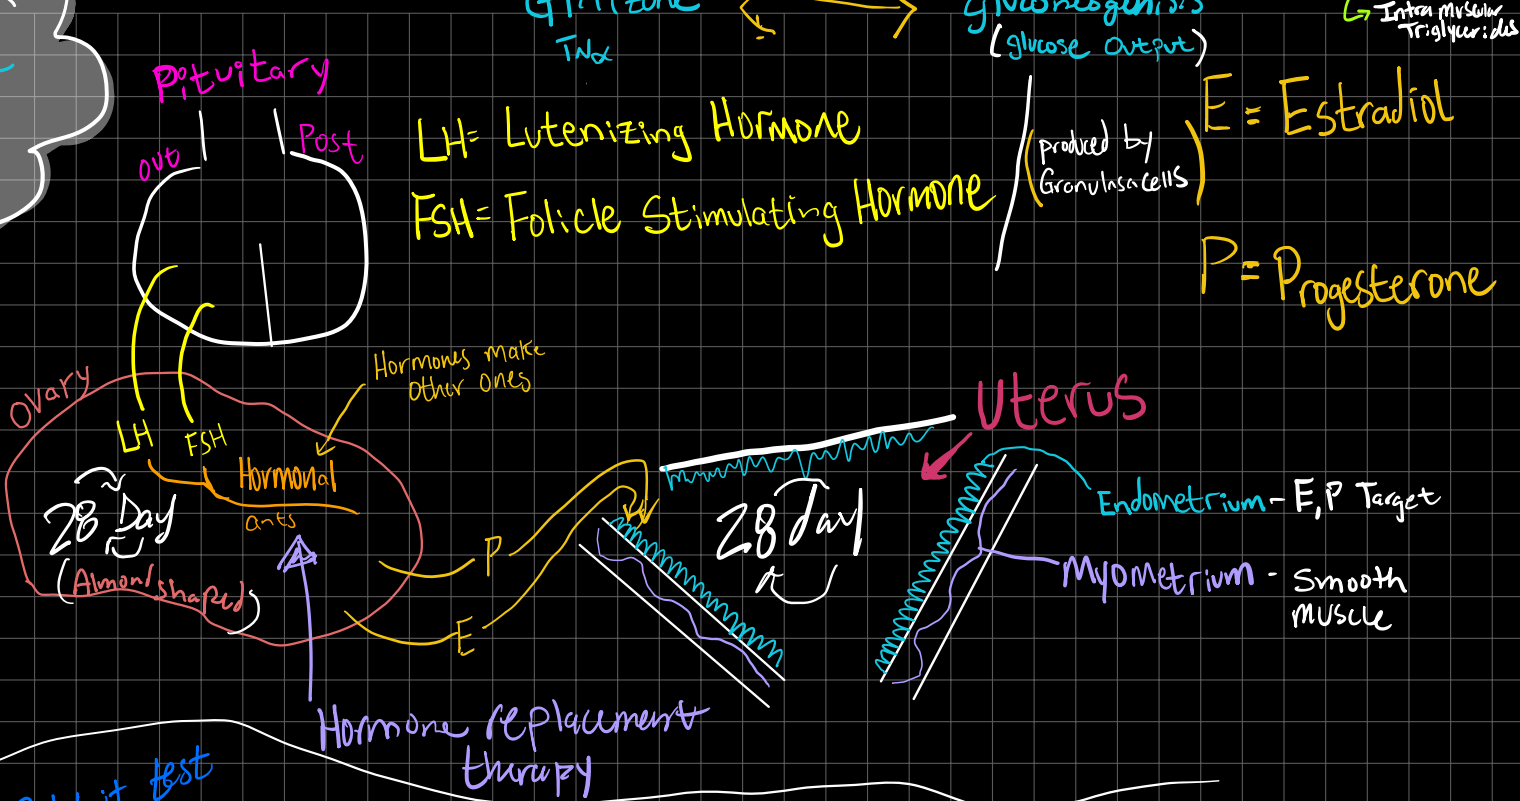 TNα
gluconeogenisis
(glucose output)
Intra Muscular
Triglycerides
Pituitary
Post
LH= Lutenizing Hormone
FSH= Folicle Stimulating Hormone
(produced by
Granulosa cells)
E = Estradiol
P = Progesterone
Hormones make
other ones
Ovary
LH
FSH
Hormonal
ants
28 Day
(Almond shaped)
P
E
Uterus
28 day
Endometrium - E,P Target
Myometrium - Smooth
Muscle
Hormone replacement
therapy
test